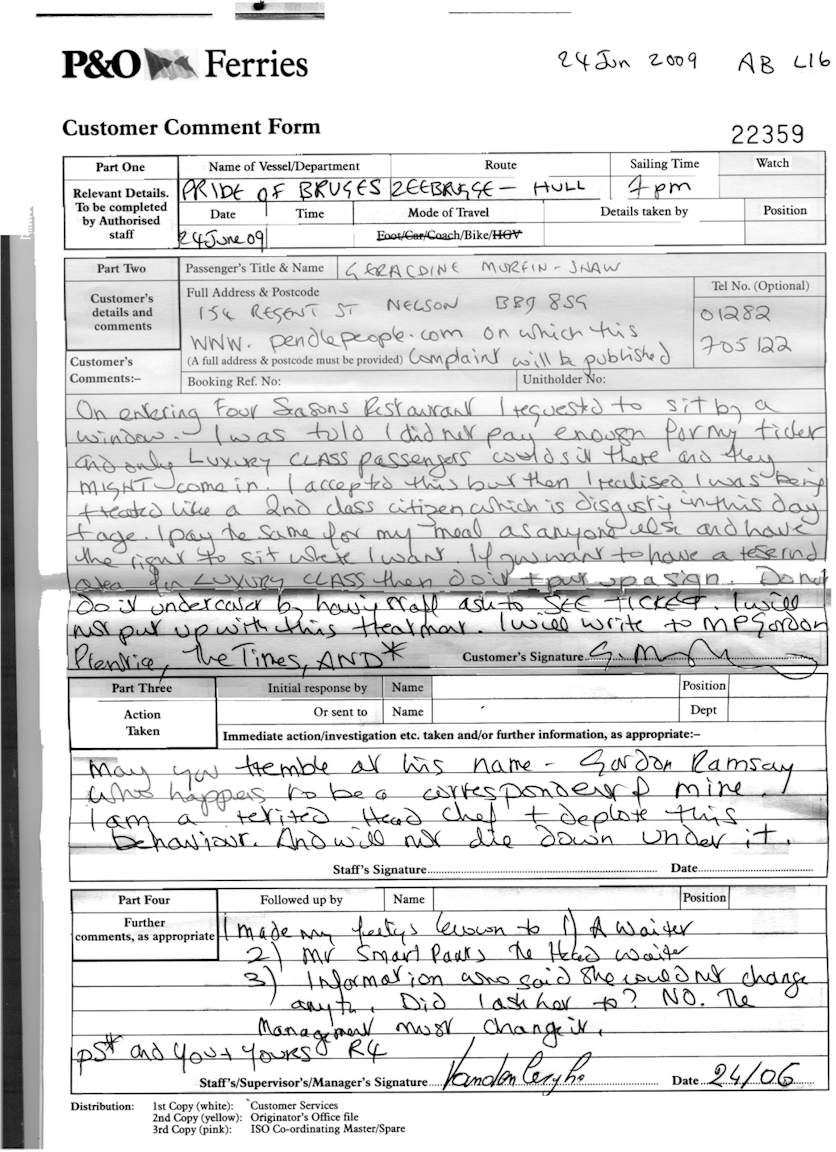 P&O Ferries
24 Jun 2009 AB L16
Customer Comment Form
22359
Part One Name of Vessel/Department Route Sailing Time Watch
Relevant Details. To be completed by Authorised staff
PRIDE OF BRUGES ZEEBRUGGE - HULL 7pm
Date Time Mode of Travel Details taken by Position
24 June 09 Foot/Car/Coach/Bike/HGV
Part Two Passenger's Title & Name GERALDINE MURFIN-SHAW
Customer's details and comments
Full Address & Postcode Tel No. (Optional)
154 REGENT ST NELSON BB9 8SG 01282
WWW. pendlepeople.com on which this 705122
(A full address & postcode must be provided) Complaint will be published
Customer's Comments:– Booking Ref. No: Unitholder No:
On entering Four Seasons Restaurant I requested to sit by a
window. I was told I did not pay enough for my ticket
and only LUXURY CLASS passengers could sit there and they
MIGHT come in. I accepted this but then I realised I was being
treated like a 2nd class citizen which is disgusty in this day
+ age. I pay the same for my meal as anyone else and have
the right to sit where I want If you want to have a reservd
area for LUXURY CLASS then do it + put up a sign. Do not
do it undercover by having staff ask to SEE TICKET. I will
not put up with this treatment. I will write to MP Gordon
Prentice, The Times, AND* Customer's Signature
Part Three Initial response by Name Position
Action Taken Or sent to Name Dept
Immediate action/investigation etc. taken and/or further information, as appropriate:–
May you tremble at his name - Gordon Ramsay
who happens to be a correspondent of mine.
I am a retired Head Chef + deplore this
behaviour. And will not die down under it.
Staff's Signature Date
Part Four Followed up by Name Position
Further comments, as appropriate
I made my feelings known to 1) A Waiter
2) Mr Smart Pants The Head Waiter
3) Information who said She could not change
anyth. Did I ask her to? NO. The
Management must change it.
PS* and You + Yours R4
Staff's/Supervisor's/Manager's Signature Date 24/06
Distribution: 1st Copy (white): Customer Services
2nd Copy (yellow): Originator's Office file
3rd Copy (pink): ISO Co-ordinating Master/Spare